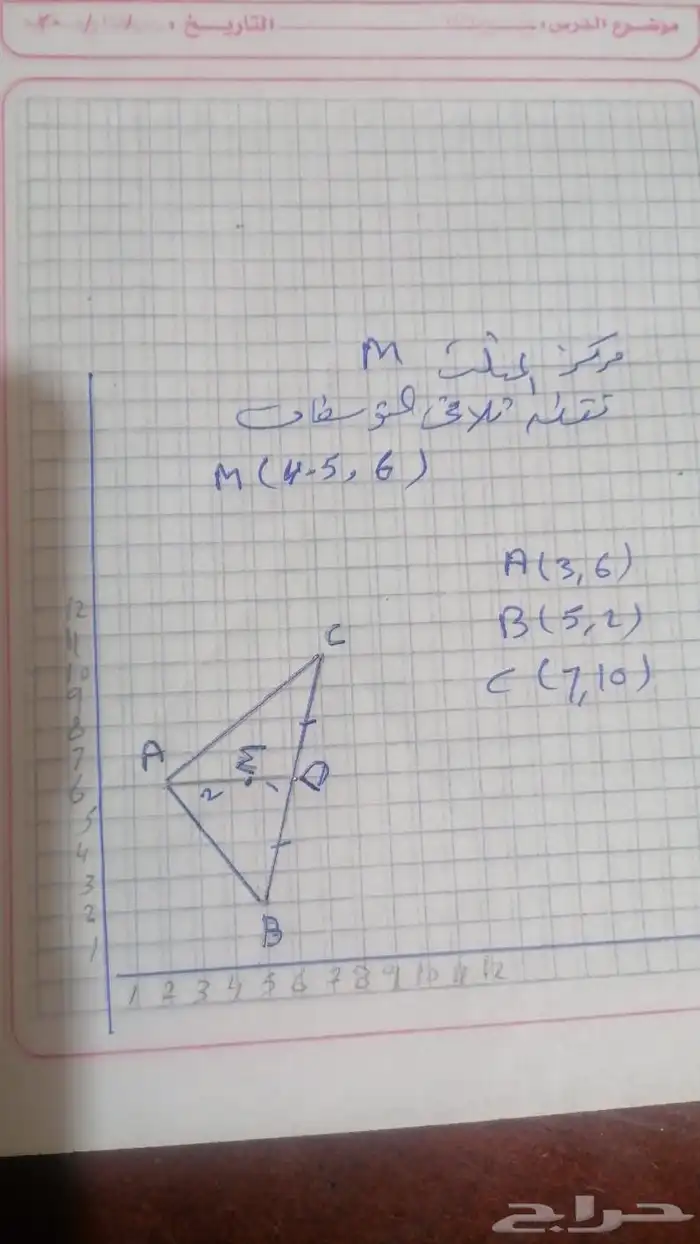 موضوع الدرس: التاريخ: / / ٢٠
مركز المثلث M
نقطة تلاقي المتوسطات
M (4.5, 6)
A (3, 6)
B (5, 2)
C (7, 10)
12
11
10
9
8
7
6
5
4
3
2
1
C
A
M
D
2
1
B
1 2 3 4 5 6 7 8 9 10 11 12
حراج